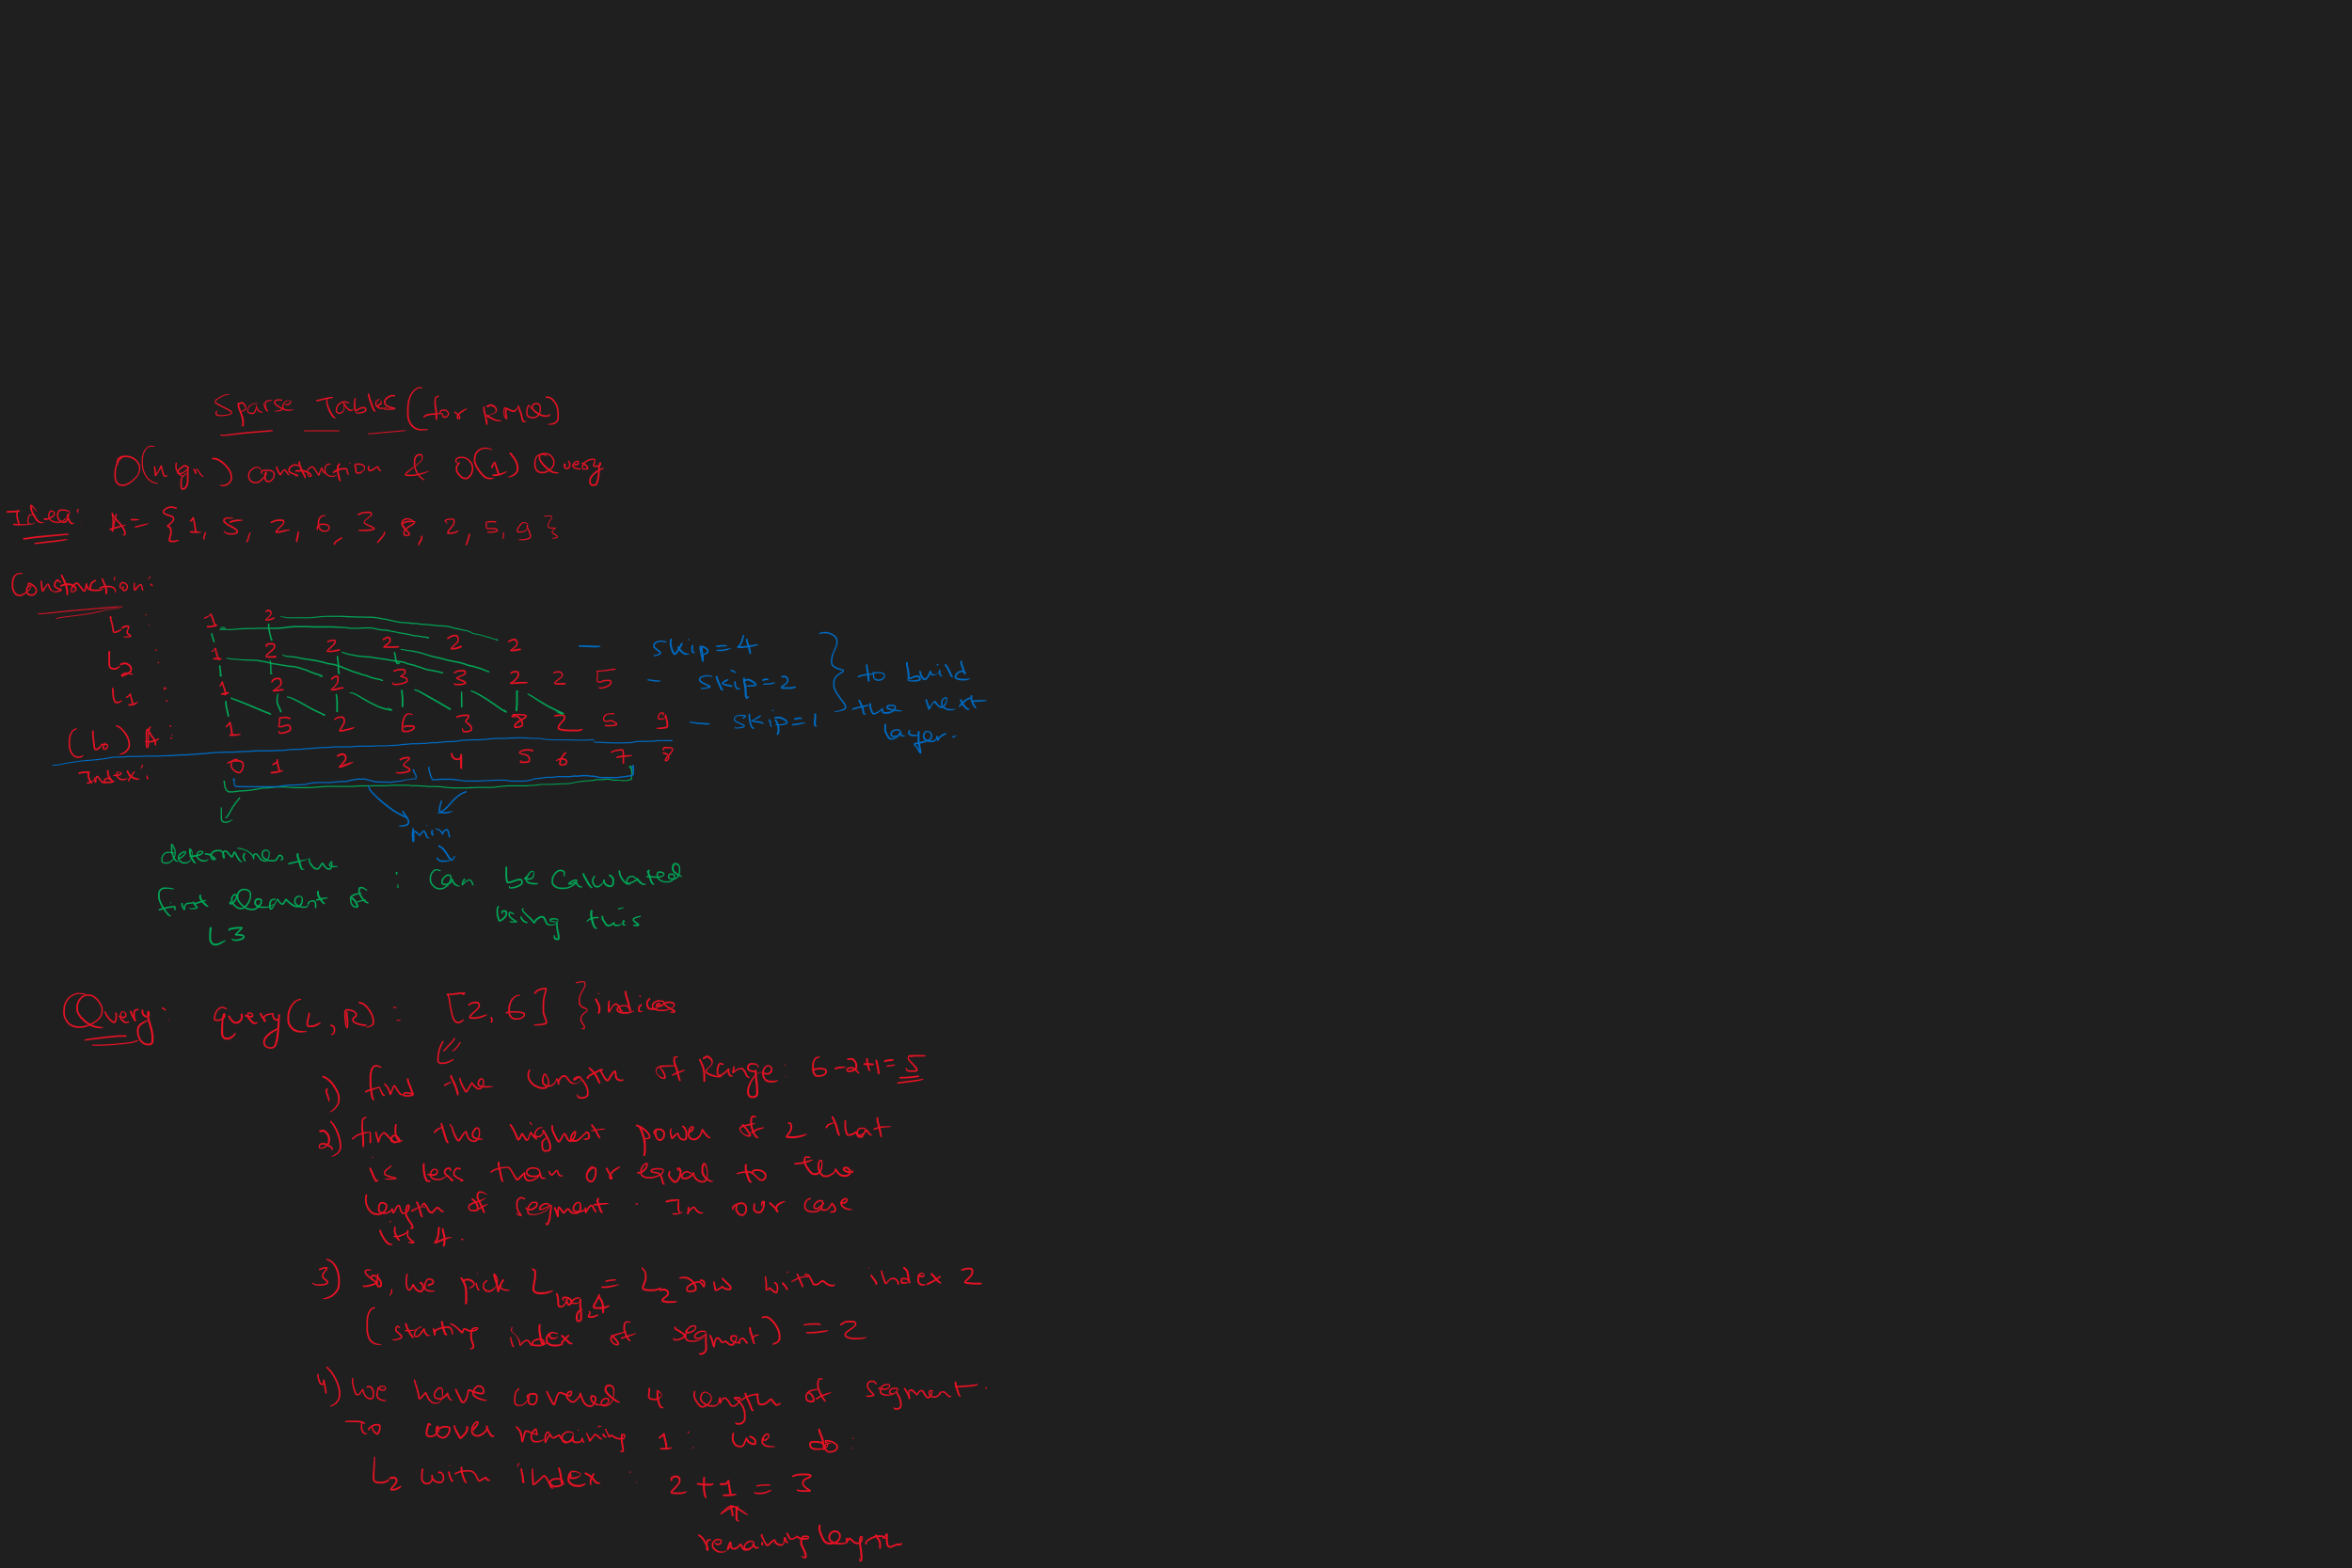 Sparse Tables (for RMQ)
O(n lgn) construction & O(1) Query
Idea: A = {1, 5, 2, 6, 3, 8, 2, 5, 9}
Construction:
L3 : 1 2
L2 : 1 2 2 2 2 2 — skip=4
L1 : 1 2 2 3 3 2 2 5 — skip=2 } to build
(L0) A : 1 5 2 6 3 8 2 5 9 — skip=1 the next
layer.
Index: 0 1 2 3 4 5 6 7 8
min
determines the
first element of : Can be Calculated
L3 using this
Query: query(L,R) = [2,6] } indices
1) find the length of Range: 6-2+1=5
2) find the highest power of 2 that
is less than or equal to the
length of segment. In our case
its 4.
3) So, we pick L log₂4 = L2 row with index 2
(starting index of segment) = 2
4) We have covered 4 length of segment.
To cover remaining 1: we do:
L2 with index : 2+1 = 3
remaining length